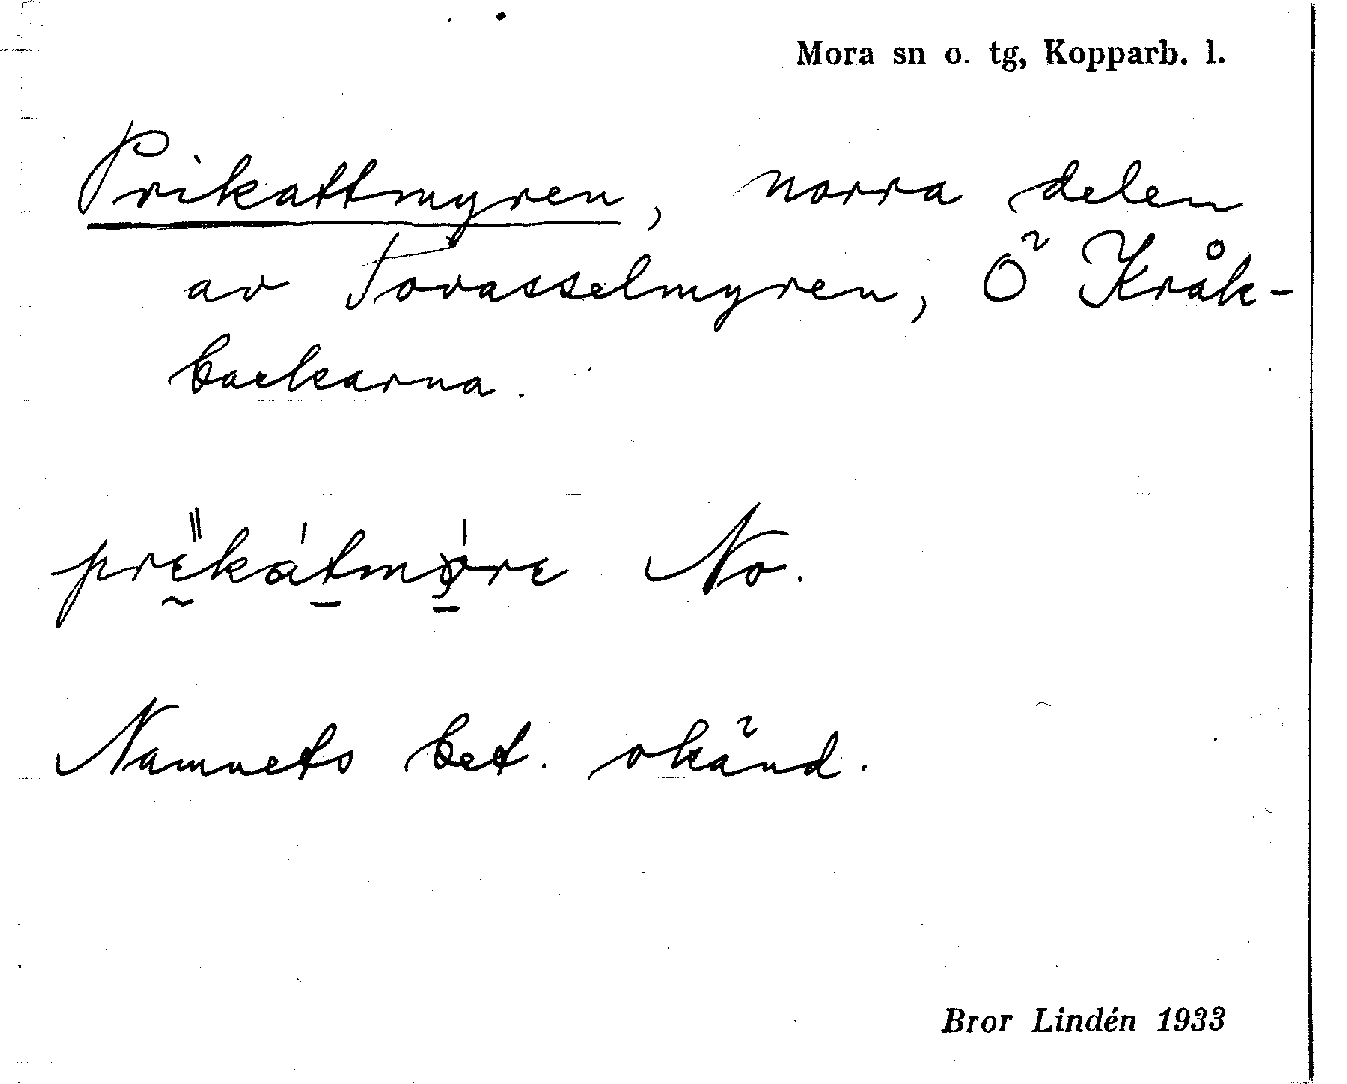 Mora sn o. tg, Kopparb. l.
Prikattmyren, norra delen
av Tovasselmyren, Ö Kråk-
backarna.
No.
Namnets bet. okänd.
Bror Lindén 1933